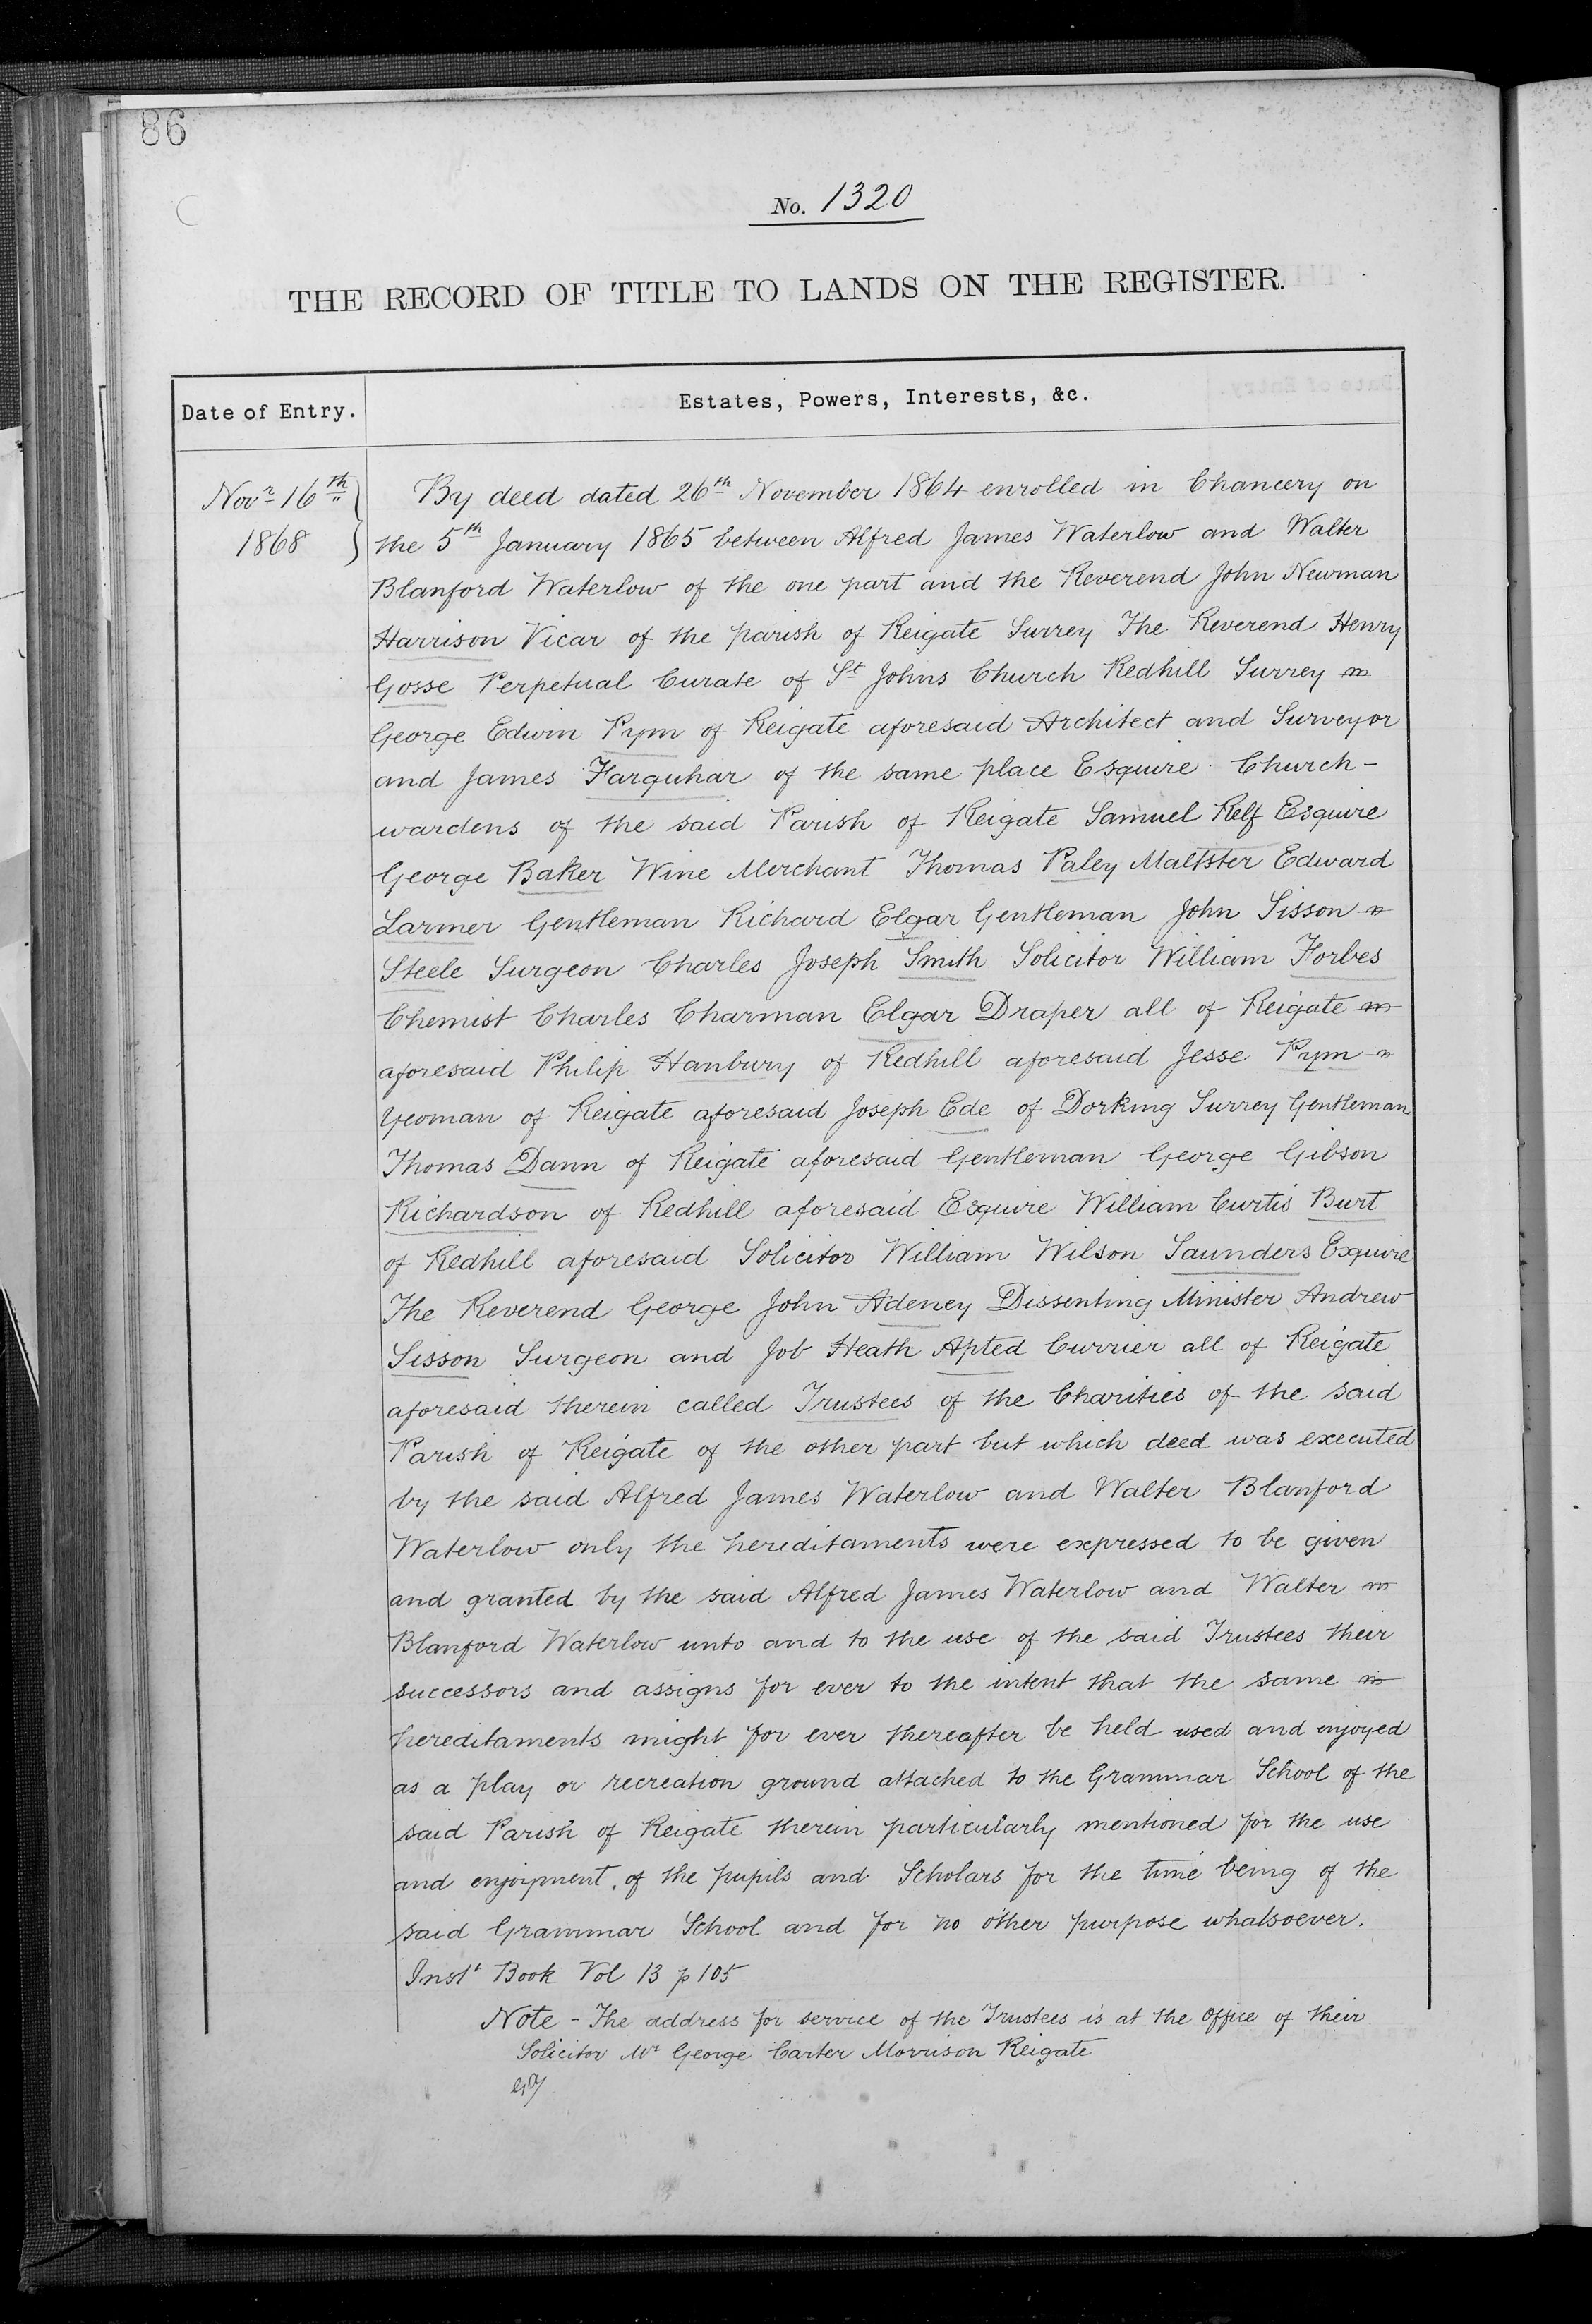 86
No. 1320
THE RECORD OF TITLE TO LANDS ON THE REGISTER.
Date of Entry.
Estates, Powers, Interests, &c.
Novr 16th
1868
By deed dated 26th November 1864 enrolled in Chancery on
the 5th January 1865 between Alfred James Waterlow and Walter
Blanford Waterlow of the one part and the Reverend John Newman
Harrison Vicar of the parish of Reigate Surrey The Reverend Henry
Gosse Perpetual Curate of St Johns Church Redhill Surrey
George Edwin Pym of Reigate aforesaid Architect and Surveyor
and James Farquhar of the same place Esquire Church-
wardens of the said Parish of Reigate Samuel Relf Esquire
George Baker Wine Merchant Thomas Paley Maltster Edward
Larmer Gentleman Richard Elgar Gentleman John Sisson
Steele Surgeon Charles Joseph Smith Solicitor William Forbes
Chemist Charles Charman Elgar Draper all of Reigate
aforesaid Philip Hanbury of Redhill aforesaid Jesse Pym
Yeoman of Reigate aforesaid Joseph Ede of Dorking Surrey Gentleman
Thomas Dann of Reigate aforesaid Gentleman George Gibson
Richardson of Redhill aforesaid Esquire William Curtis Burt
of Redhill aforesaid Solicitor William Wilson Saunders Esquire
The Reverend George John Adeney Dissenting Minister Andrew
Sisson Surgeon and Job Heath Apted Currier all of Reigate
aforesaid therein called Trustees of the Charities of the said
Parish of Reigate of the other part but which deed was executed
by the said Alfred James Waterlow and Walter Blanford
Waterlow only the hereditaments were expressed to be given
and granted by the said Alfred James Waterlow and Walter
Blanford Waterlow unto and to the use of the said Trustees their
successors and assigns for ever to the intent that the same
hereditaments might for ever thereafter be held used and enjoyed
as a play or recreation ground attached to the Grammar School of the
said Parish of Reigate therein particularly mentioned for the use
and enjoyment of the pupils and Scholars for the time being of the
said Grammar School and for no other purpose whatsoever.
Inst Book Vol 13 p 105
Note - The address for service of the Trustees is at the Office of their
Solicitor Mr George Carter Morrison Reigate